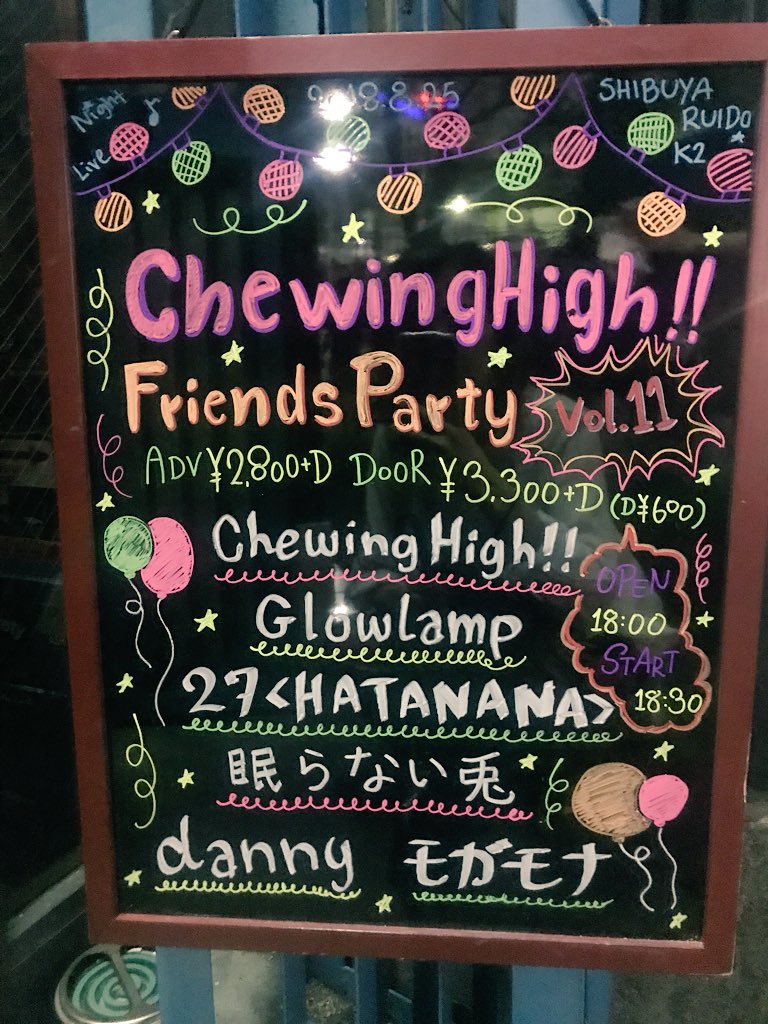 Night
Live
2018.8.25
SHIBUYA
RUIDO
K2
ChewingHigh!!
Friends Party
Vol.11
ADV ¥2,800+D DOOR ¥3,300+D (D¥600)
Chewing High!!
OPEN
18:00
START
18:30
Glowlamp
27<HATANANA>
眠らない兎
danny モガモナ